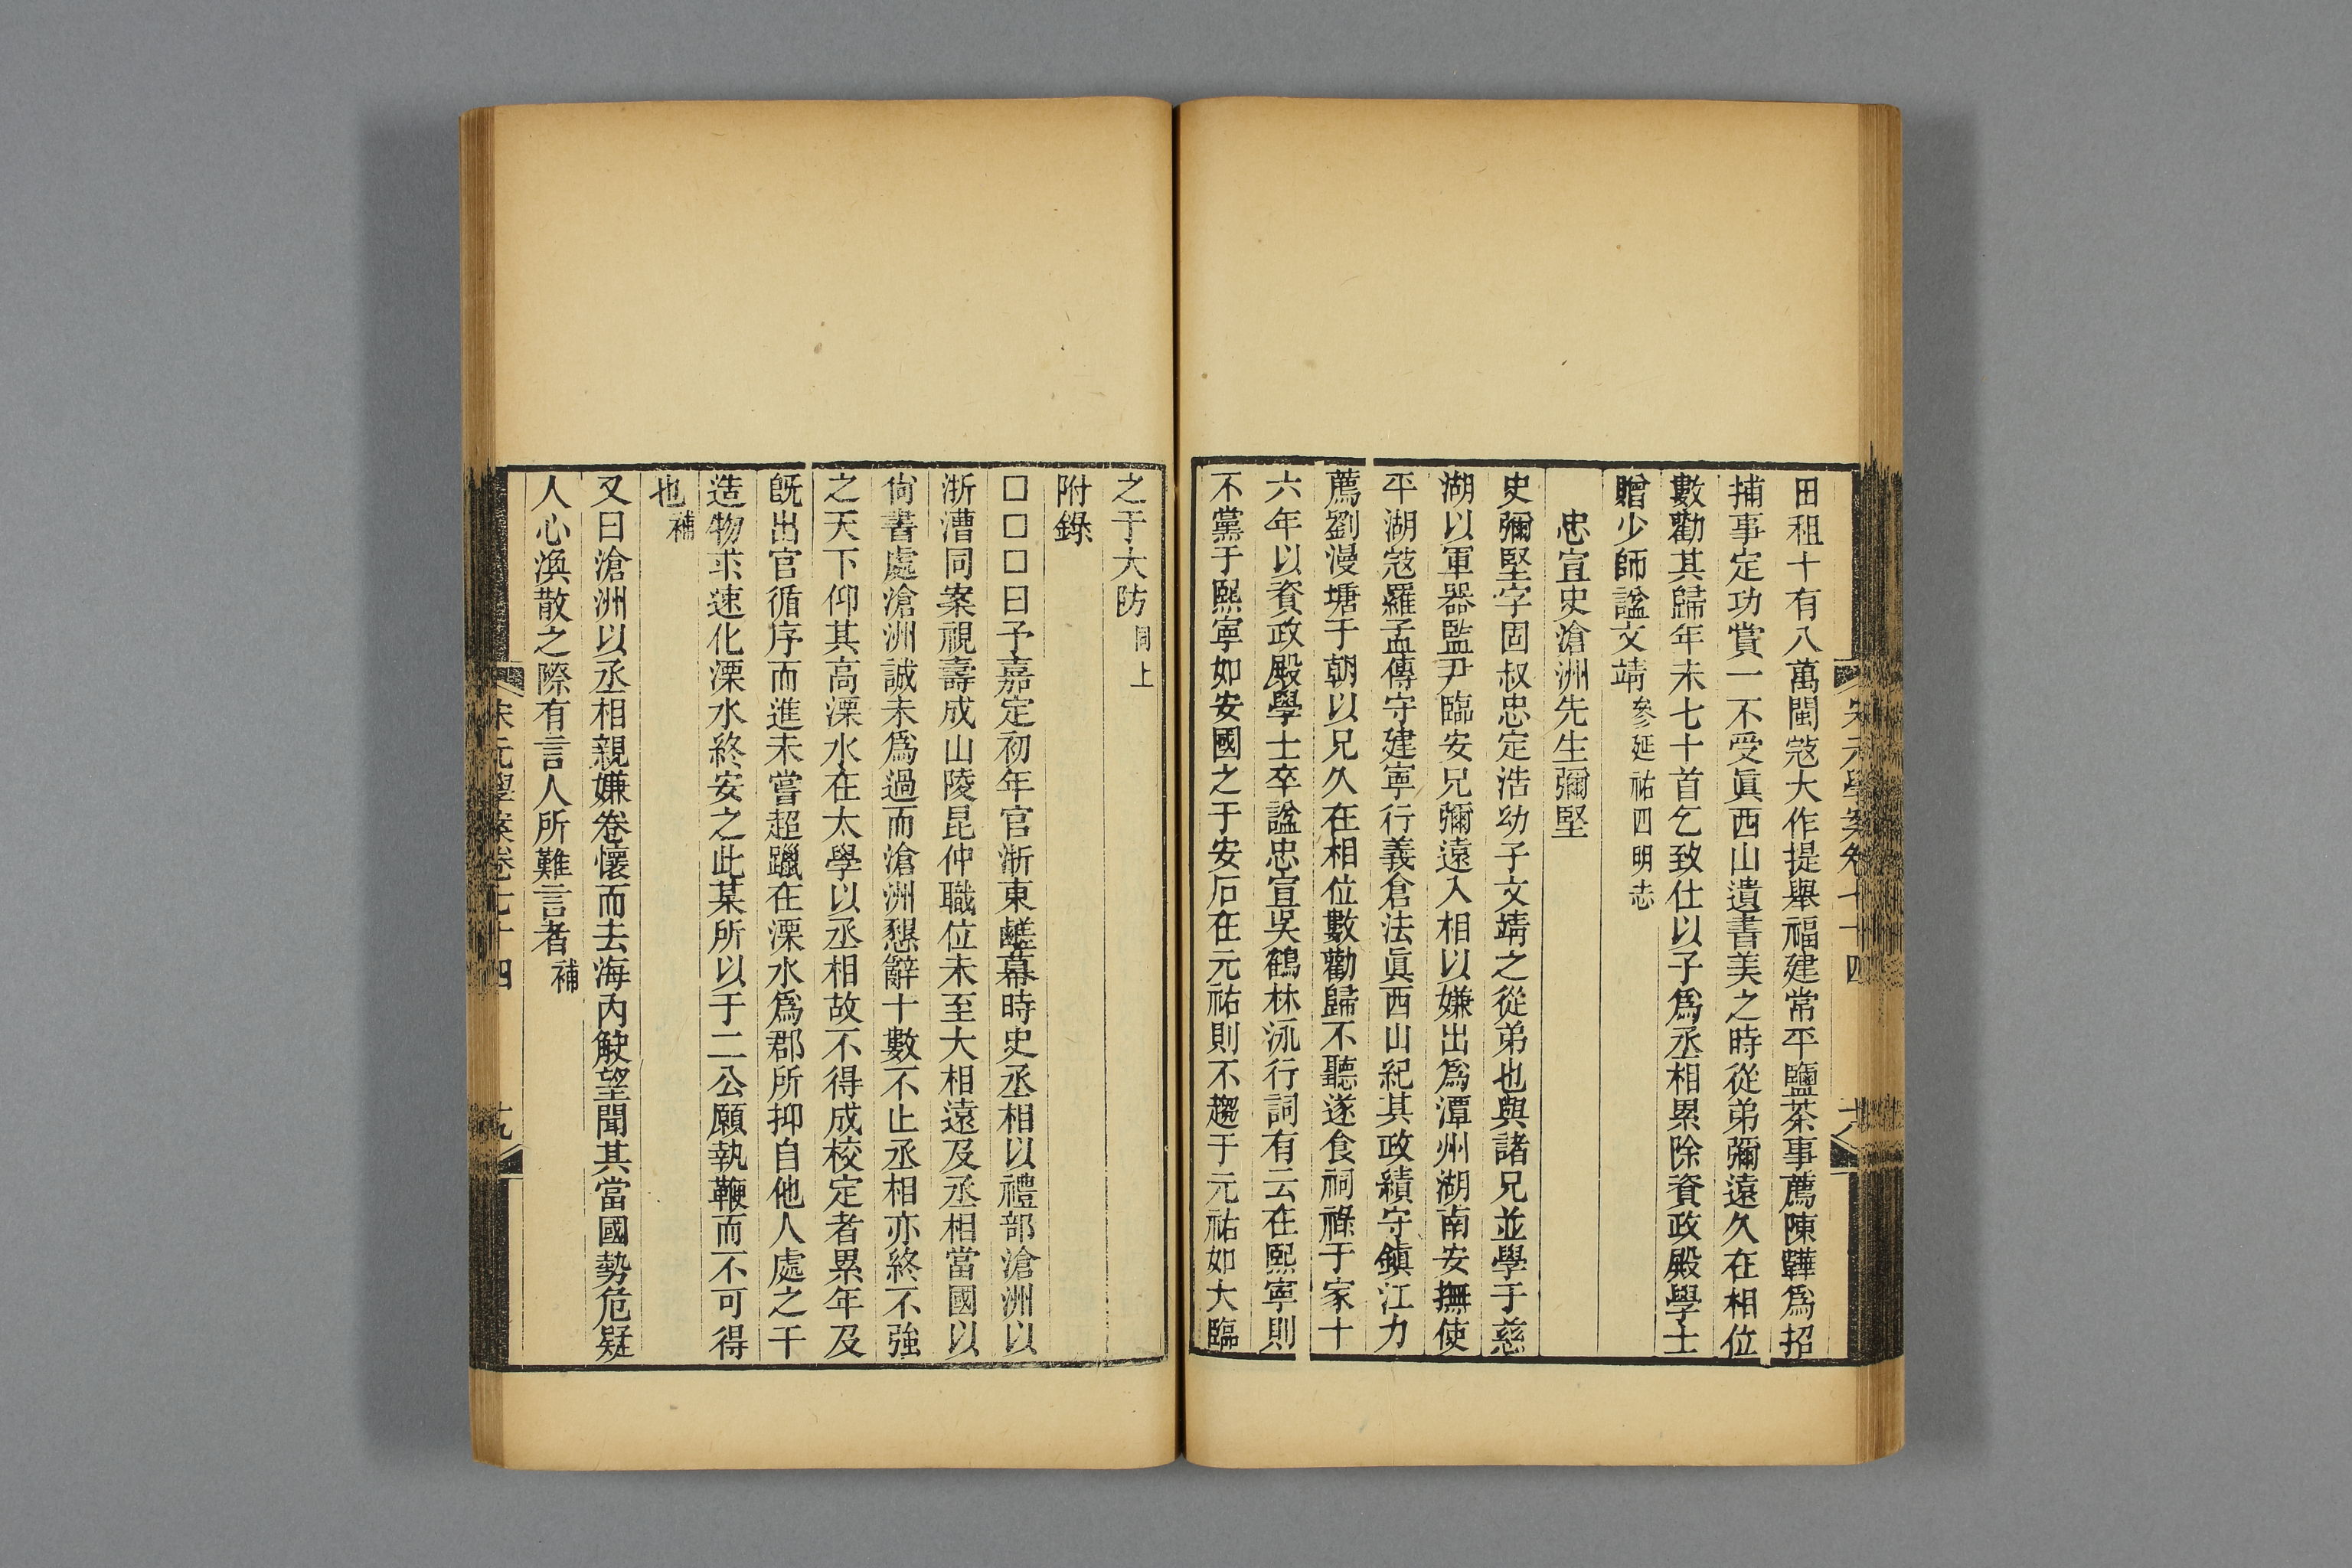 宋元學案卷七十四 大
田租十有八萬閩寇大作提舉福建常平鹽茶事薦陳韡爲招
捕事定功賞一不受眞西山遺書美之時從弟彌遠久在相位
數勸其歸年未七十首乞致仕以子爲丞相累除資政殿學士
贈少師諡文靖參延祐四明志
忠宣史滄洲先生彌堅
史彌堅字固叔忠定浩幼子文靖之從弟也與諸兄並學于慈
湖以軍器監尹臨安兄彌遠入相以嫌出爲潭州湖南安撫使
平湖寇羅孟傳守建寧行義倉法眞西山紀其政績守鎮江力
薦劉漫塘于朝以兄久在相位數勸歸不聽遂食祠祿于家十
六年以資政殿學士卒諡忠宣吳鶴林泳行詞有云在熙寧則
不黨于熙寧如安國之于安石在元祐則不趨于元祐如大臨
之于大防同上
附錄
□□□曰予嘉定初年官浙東鹺幕時史丞相以禮部滄洲以
浙漕同案視壽成山陵昆仲職位未至大相遠及丞相當國以
尙書處滄洲誠未爲過而滄洲懇辭十數不止丞相亦終不強
之天下仰其高溧水在太學以丞相故不得成校定者累年及
旣出官循序而進未嘗超躐在溧水爲郡所抑自他人處之干
造物求速化溧水終安之此某所以于二公願執鞭而不可得
也補
又曰滄洲以丞相親嫌卷懷而去海內觖望聞其當國勢危疑
人心渙散之際有言人所難言者補
宋元學案卷七十四